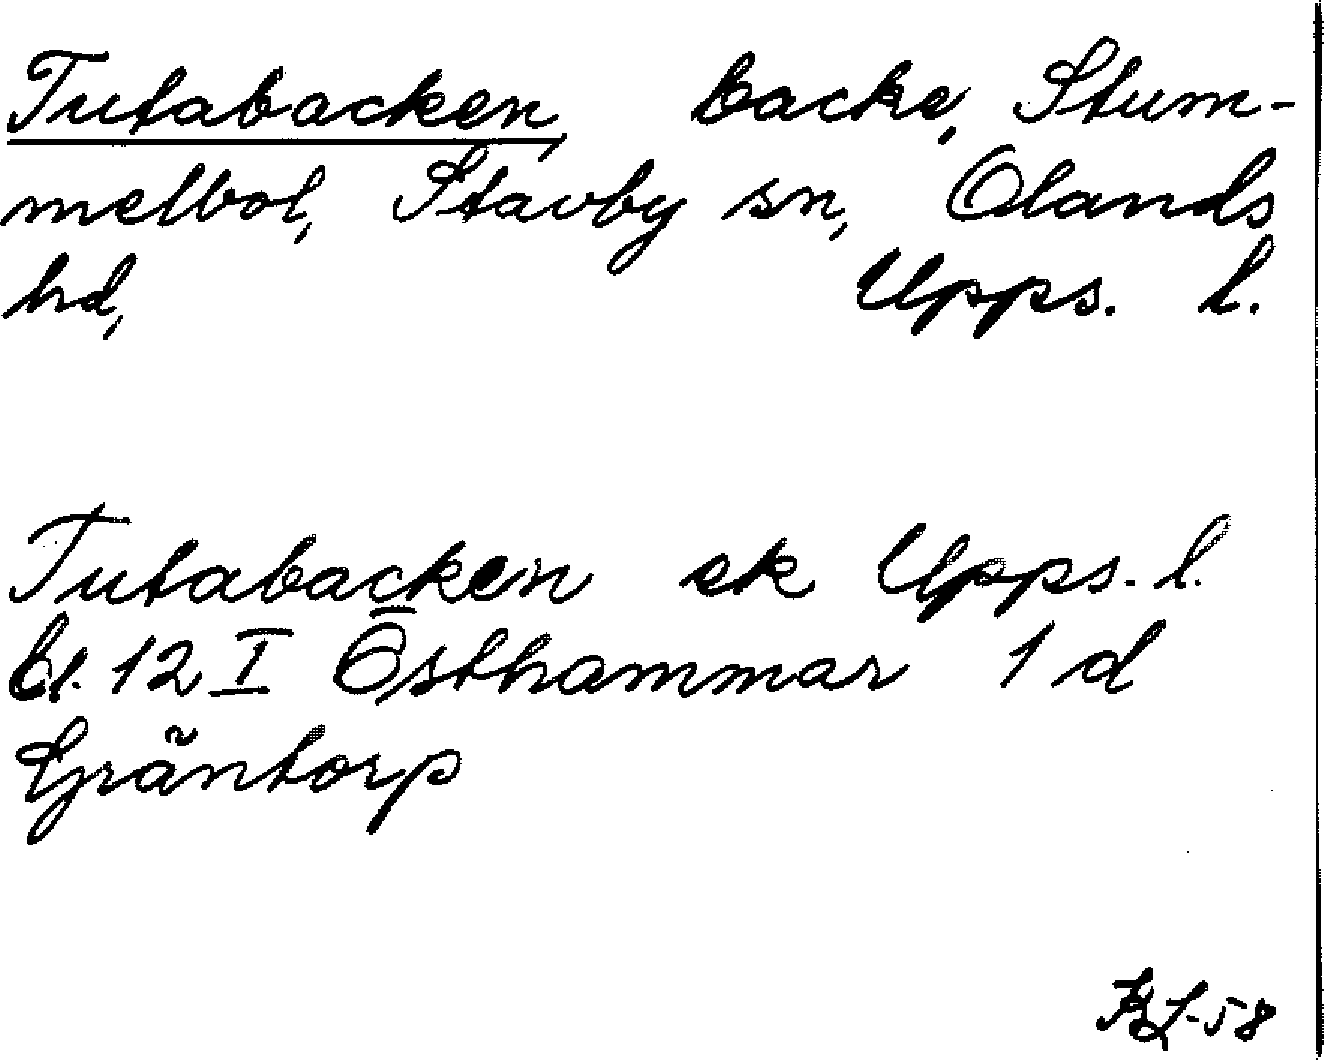 Tutabacken, backe, Stum-
melbol, Stavby sn, Olands
hd, Upps. l.
Tutabacken ek Upps. l.
bl. 12 I Östhammar 1 d
Gräntorp